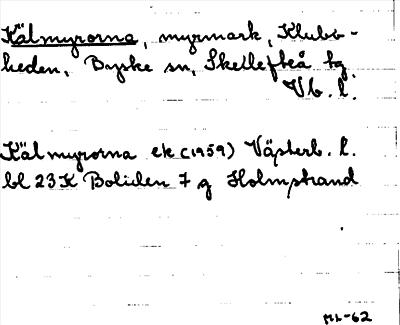 Kälmyrorna, myrmark, Klubb-
heden, Byske sn, Skellefteå tg.
Vb. l.
Kälmyrorna ek (1959) Västerb. l.
bl 23K Boliden 7 g Holmstrand
ML-62